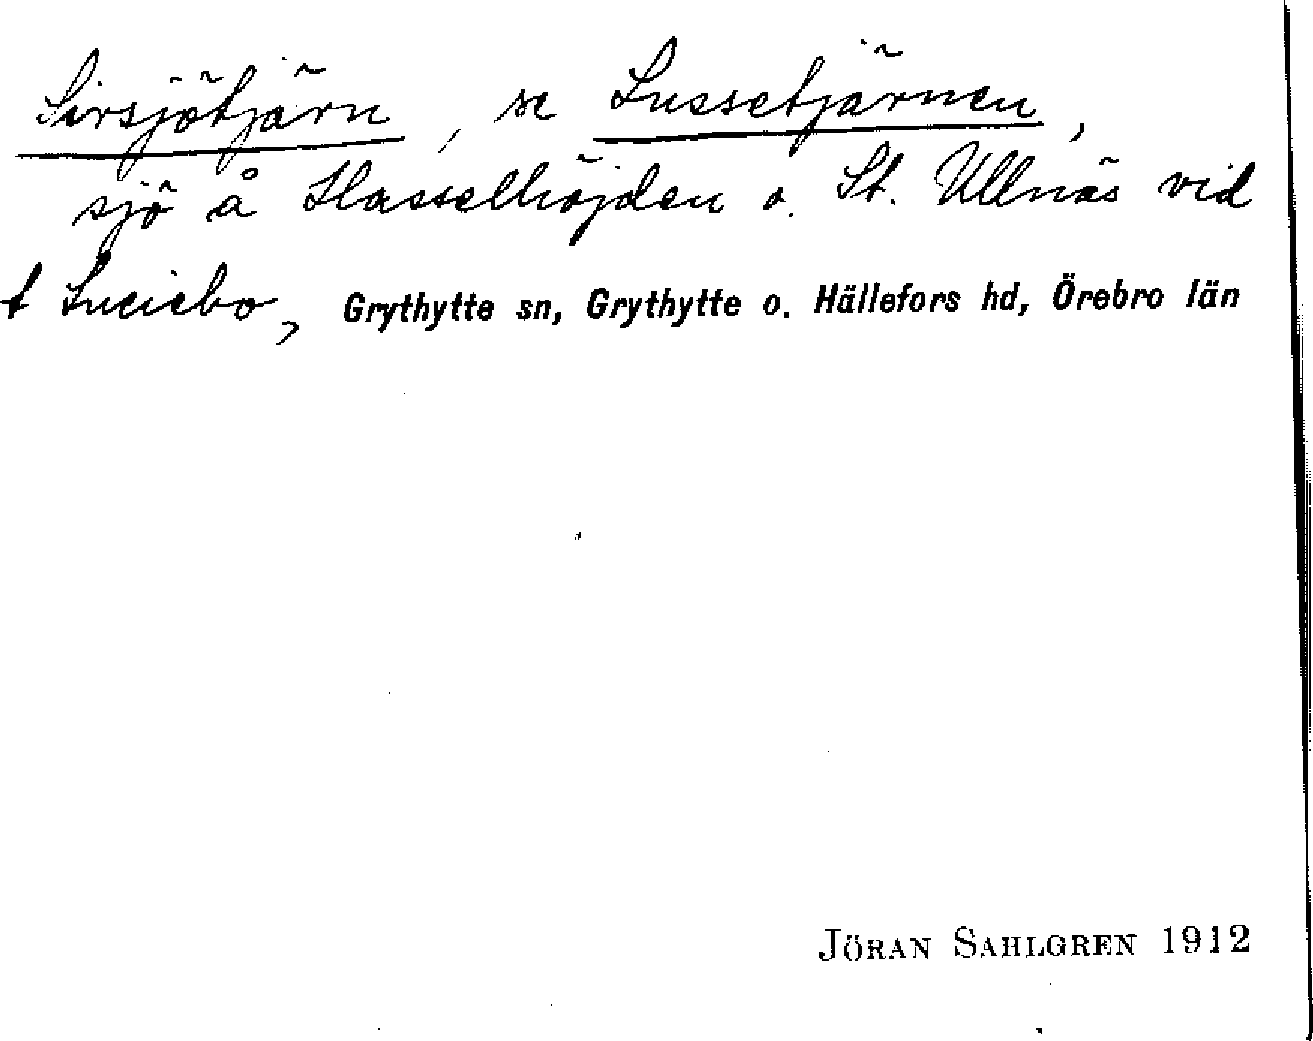 Sirsjötjärn, se Lussetjärnen,
sjö å Hasselhöjden o. St. Ullnäs vid
t Luciebo, Grythytte sn, Grythytte o. Hällefors hd, Örebro län
JÖRAN SAHLGREN 1912